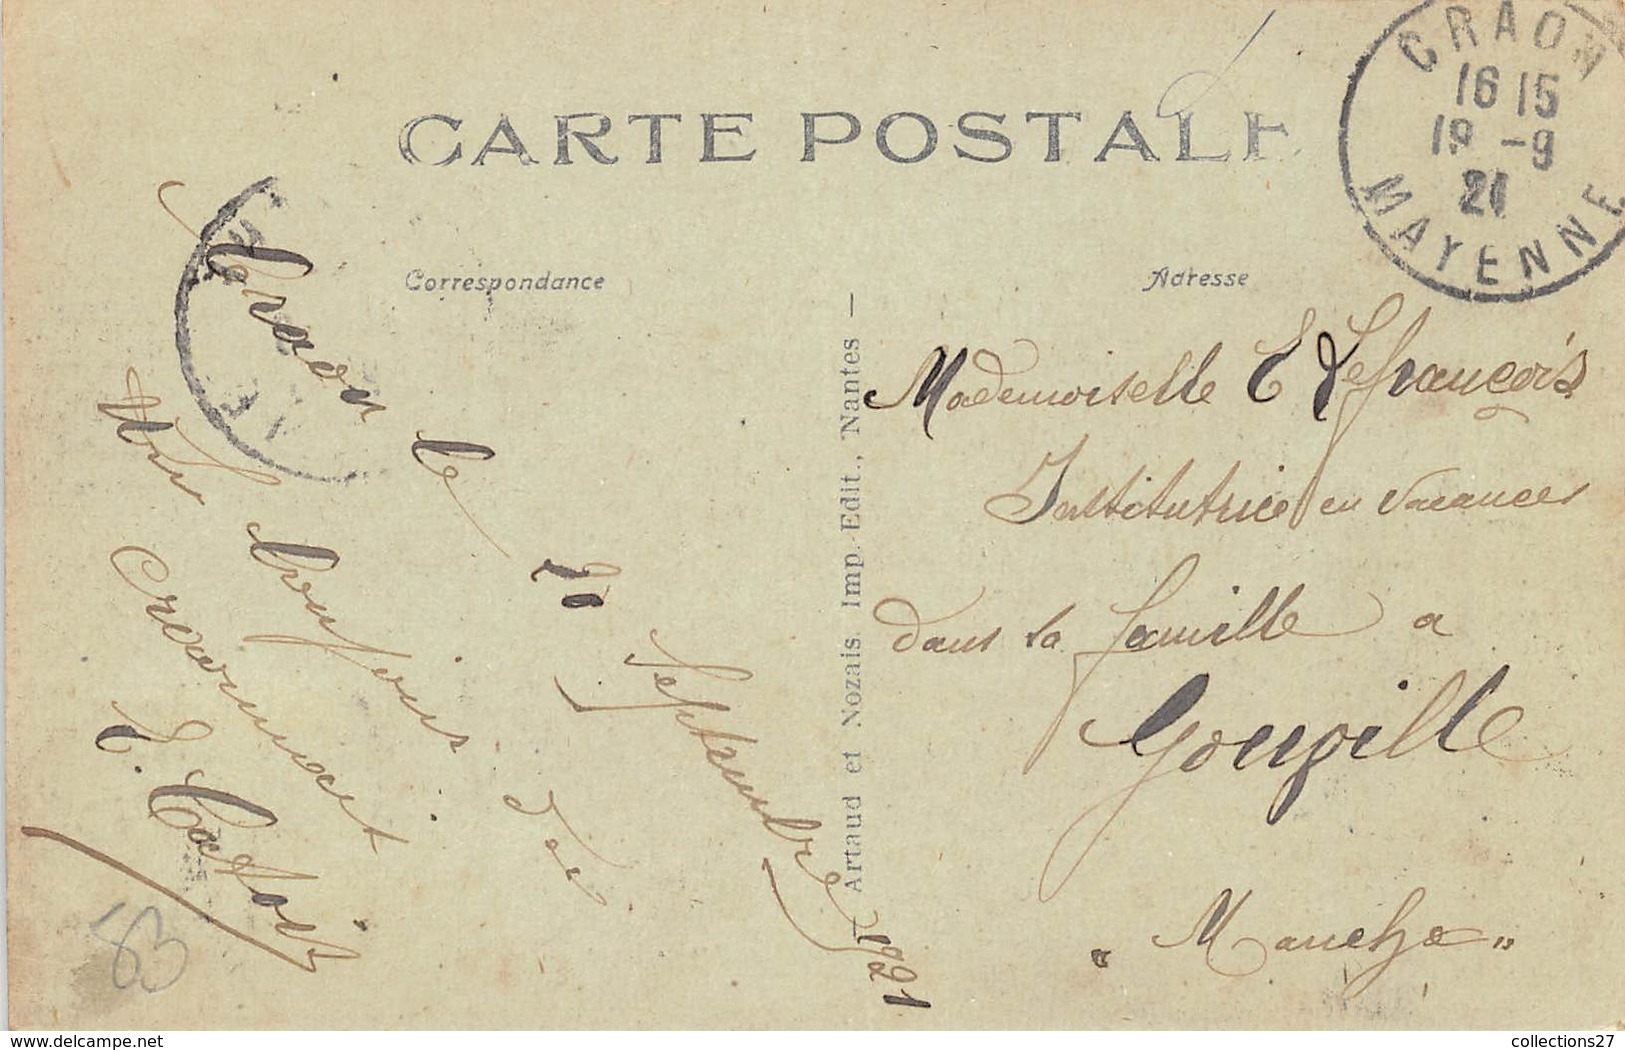 CARTE POSTALE
CRAON
16 15
19 -9
21
MAYENNE
Correspondance
Adresse
Craon le 20 Septembre 1921
Un bonjour de
Craon
E. Catois
Artaud et Nozais. Imp.-Edit., Nantes —
Mademoiselle E Lefrançois
Institutrice en vacances
dans sa famille a
Gouville
" Manche "
53
delcampe.net
collections27